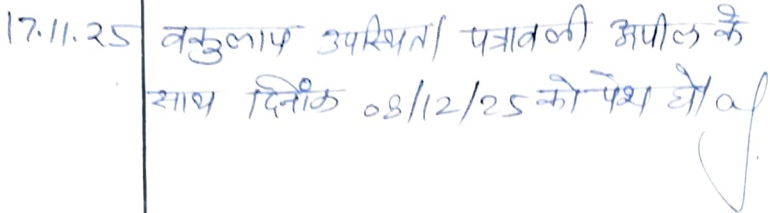 17.11.25 वकुलाय उपस्थित। पत्रावली अपील के
साथ दिनांक 08/12/25 को पेश हो।